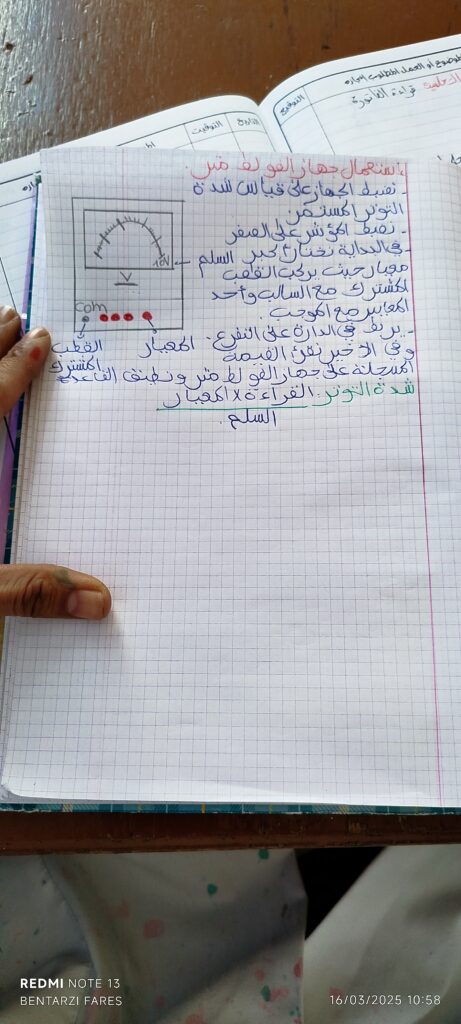 الموضوع أو العمل المطلوب إنجازه
التوقيع
قراءة الفاتورة
التاريخ
التوقيت
استعمال جهاز الفولط متر.
نضبط الجهاز على قياس شدة
التوتر المستمر
- نضبط المؤشر على الصفر
- في البداية نختار أكبر
معيار حيث يركب القطب
المشترك مع السالب وأحد
المعايير مع الموجب.
- يربط في الدارة على التفرع.
وفي الأخير نقرأ القيمة
المسجلة على جهاز الفولط متر و نطبق القاعدة
شدة التوتر: القراءة x المعيار
السلم.
10V
السلم
V
com
المعيار
القطب
المشترك
REDMI NOTE 13
BENTARZI FARES
16/03/2025 10:58